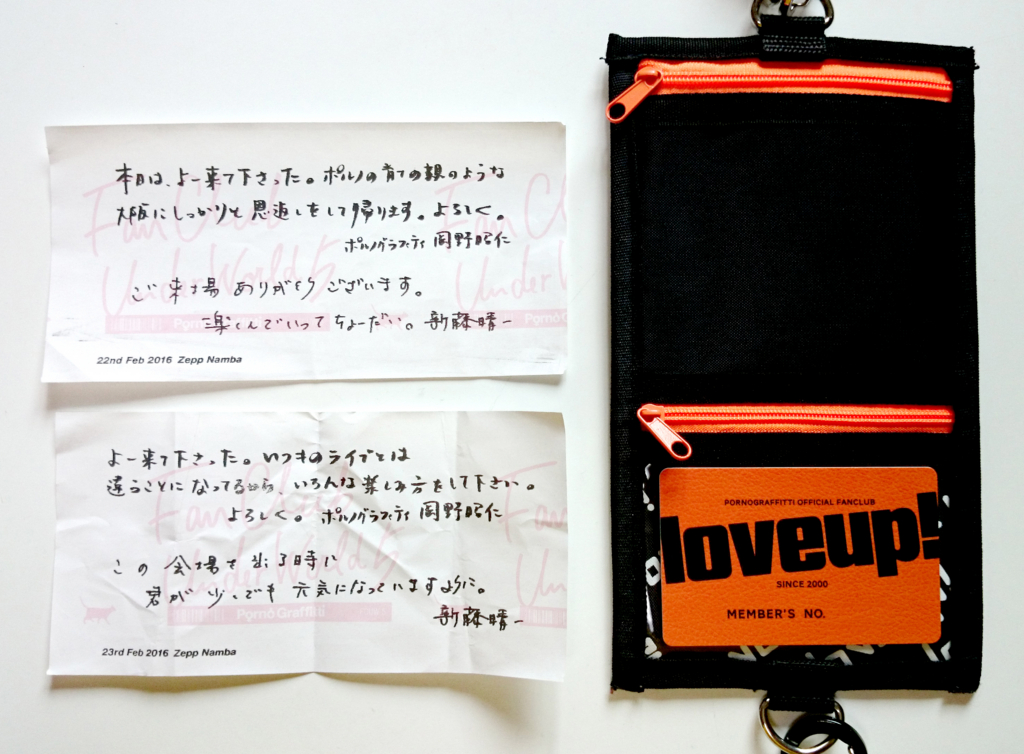 本日は、よー来て下さった。ポルノの育ての親のような
大阪にしっかりと恩返しをして帰ります。よろしく。
ポルノグラフィティ 岡野昭仁
ご来場ありがとうございます。
楽しんでいってちょーだい。新藤晴一
Fan Club
UnderWorld 5
Porno Graffitti
22nd Feb 2016 Zepp Namba
よー来て下さった。いつものライブとは
違うことになってるから、いろんな楽しみ方をして下さい。
よろしく。ポルノグラフィティ 岡野昭仁
この会場を出る時に
君が少しでも元気になっていますように。
新藤晴一
Fan Club
UnderWorld 5
Porno Graffitti
23rd Feb 2016 Zepp Namba
PORNOGRAFFITTI OFFICIAL FANCLUB
loveup!
SINCE 2000
MEMBER'S NO.